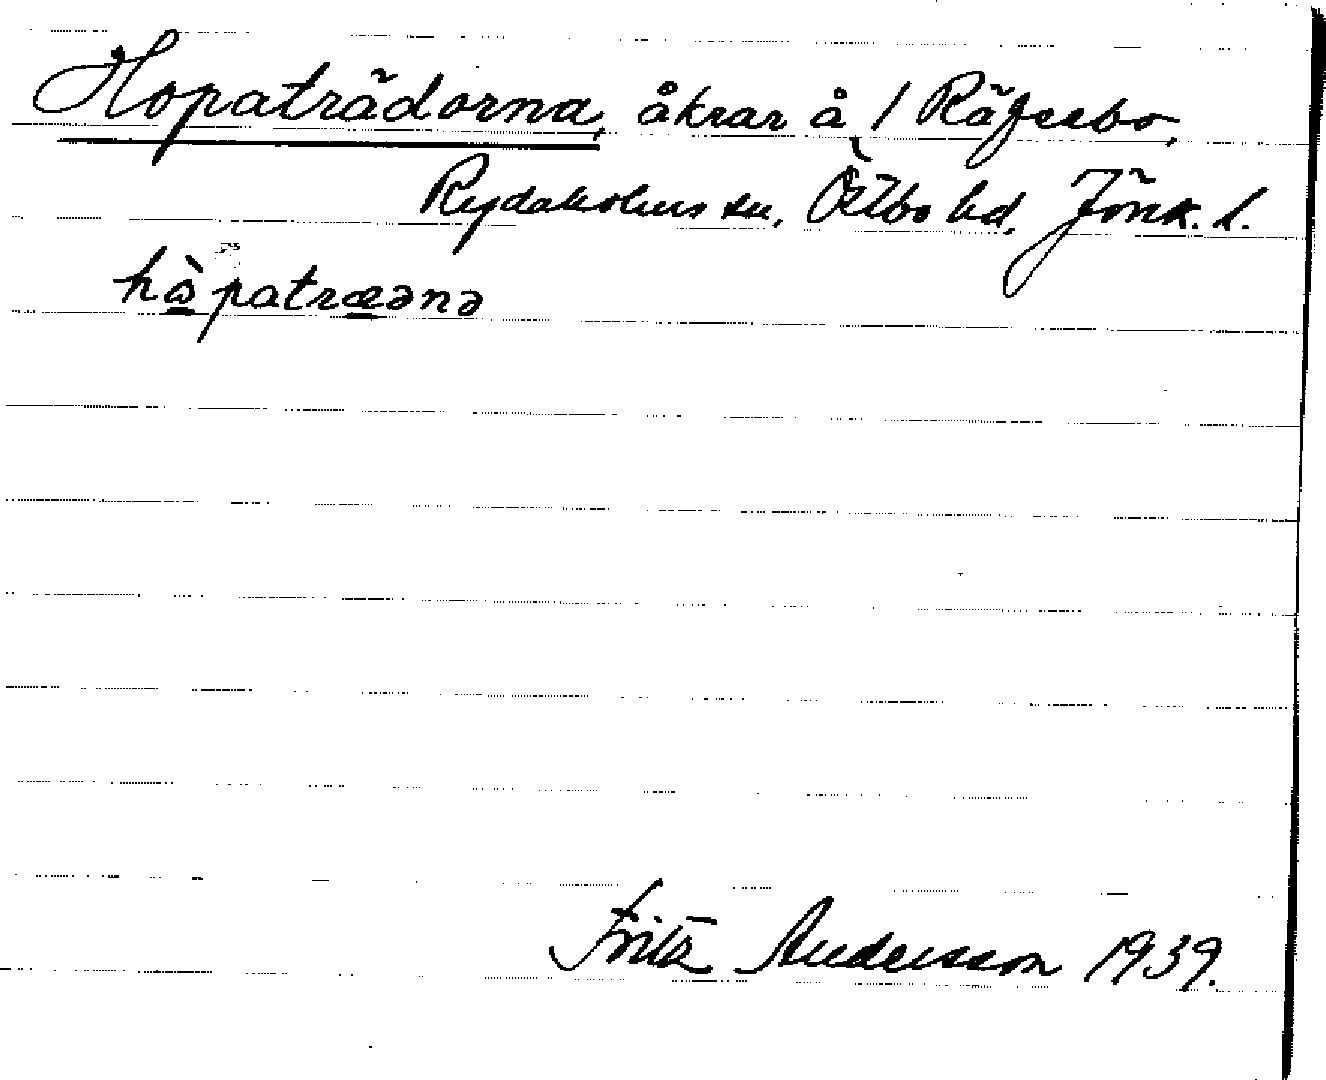 Hopaträdorna, åkrar å 1 Räfsebo,
Rydaholms sn, Östbo hd, Jönk. l.
hɷ̀patræənə
Fritz Andersson 1939.